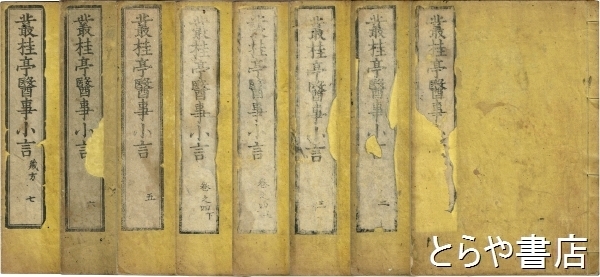 叢桂亭醫事小言
叢桂亭醫事小言 二
叢桂亭醫事小言 三
叢桂亭醫事小言
叢桂亭醫事小言 卷之四下
叢桂亭醫事小言 五
叢桂亭醫事小言 六
叢桂亭醫事小言 藏方 七
とらや書店